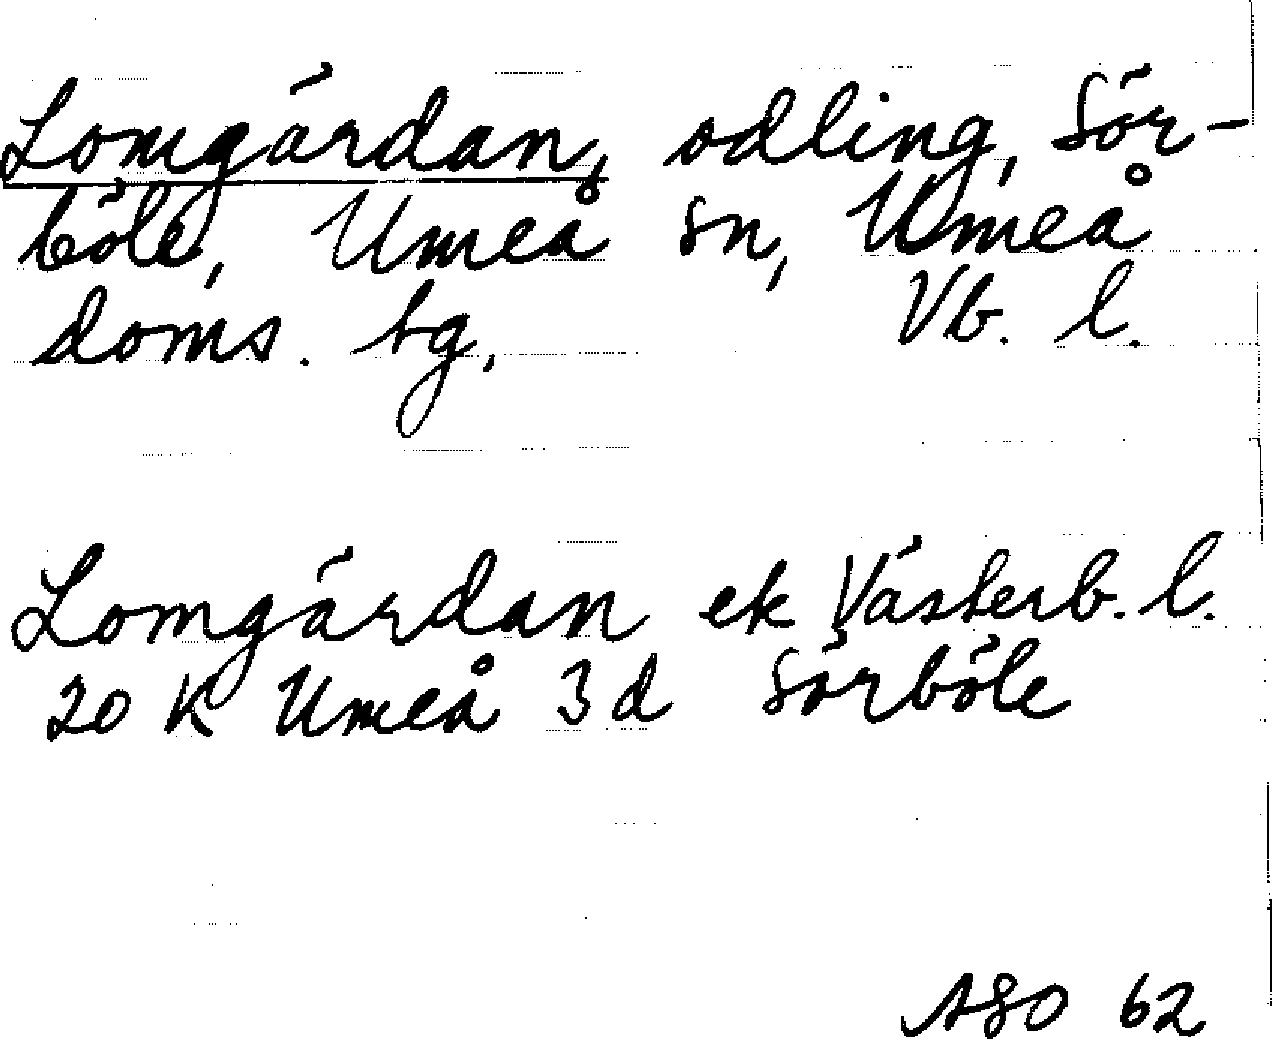 Lomgärdan, odling, Sör-
böle, Umeå sn, Umeå
doms. tg, Vb. l.
Lomgärdan ek Västerb. l.
20 K Umeå 3 d Sörböle
ASO 62